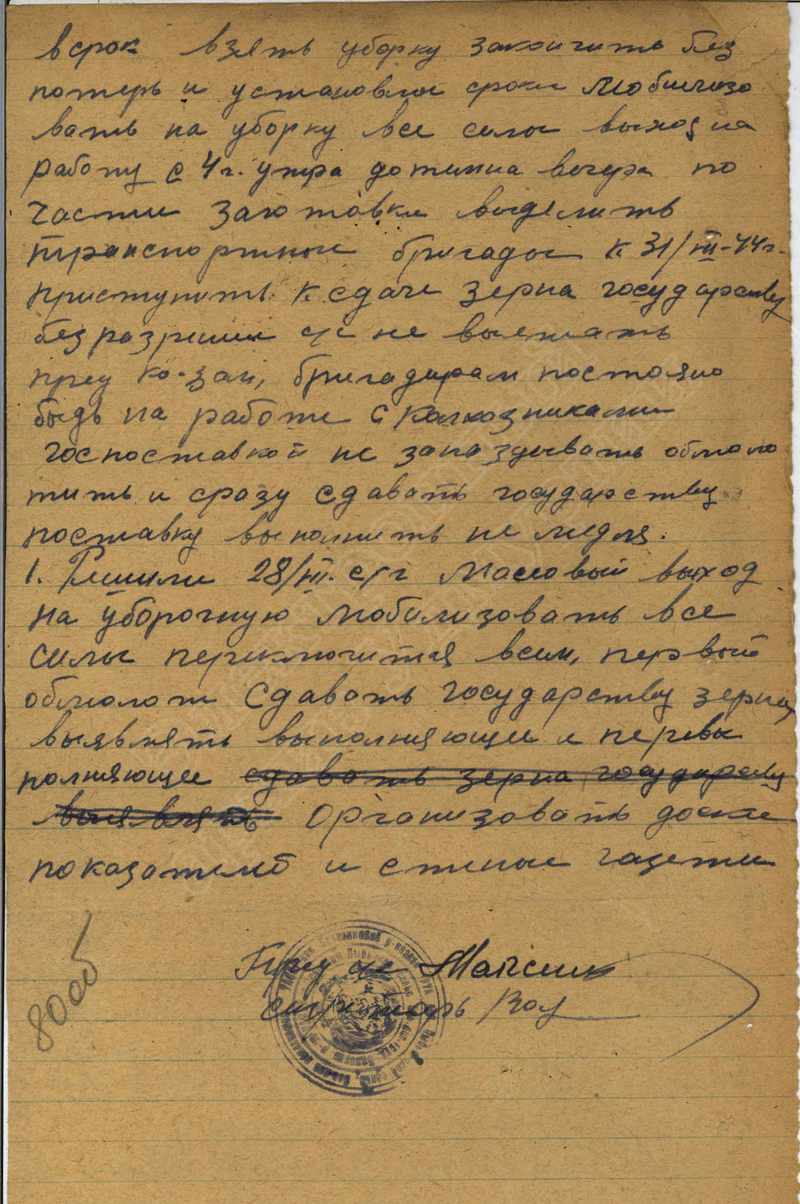 в срок взять уборку закончить без
потерь и установлен сроки мобилизо
вать на уборку все силы выход на
работу с 4 г. утра до темна вечера по
части заготовки выделить
транспортные бригады к 31/VII-44г.
приступить к сдаче зерна государству
без разреши с/с не выезжать
пред ко-зам, бригадирам постояно
быдь на работе с колхозниками
госпоставкой не запаздывать обмоло
тить и сразу сдавать государству
поставку выполнить не медля.
1. Решили 28/VII. с/г Массовый выход
на уборочную мобилизовать все
силы переключится всем, первый
обмолот сдавать государству зерна
выявлять выполняющие и перевы
полняющие сдавать зерна государству
выявлять Организовать доски
показателей и стеные газеты
Пред с/с
секретарь
80об